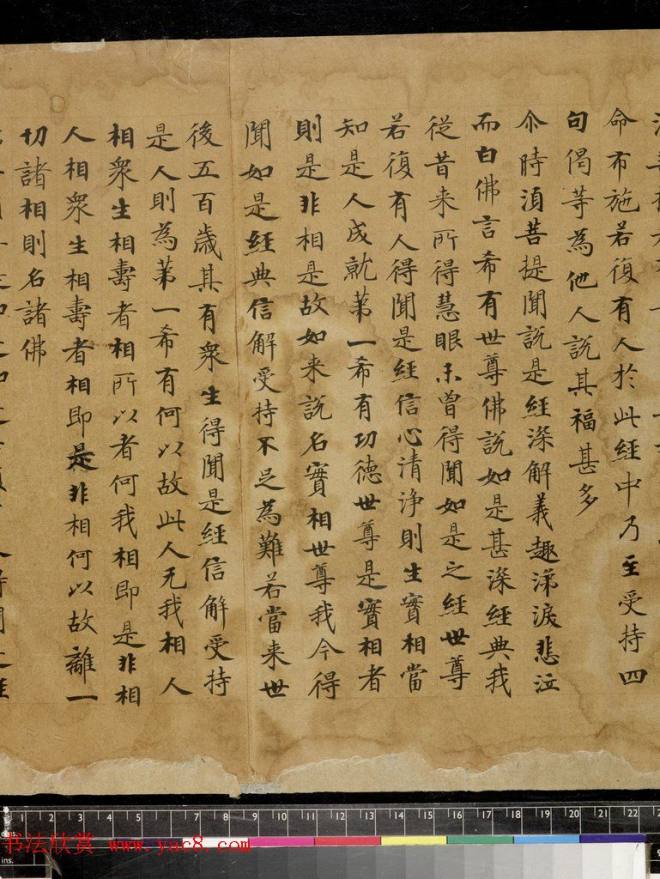 命布施若復有人於此經中乃至受持四
句偈等為他人說其福甚多
尒時湏菩提聞說是經深解義趣涕淚悲泣
而白佛言希有世尊佛說如是甚深經典我
從昔来所得慧眼未曾得聞如是之經世尊
若復有人得聞是經信心清浄則生實相當
知是人成就苐一希有功德世尊是實相者
則是非相是故如来說名實相世尊我今得
聞如是經典信解受持不足為難若當来世
後五百歲其有衆生得聞是經信解受持
是人則為苐一希有何以故此人无我相人
相衆生相壽者相所以者何我相即是非相
人相衆生相壽者相即是非相何以故離一
切諸相則名諸佛
1 2 3 4 5 6 7 8 9 10 11 12 13 14 15 16 17 18 19 20 21 22
书法欣赏 www.yac8.com
ins.